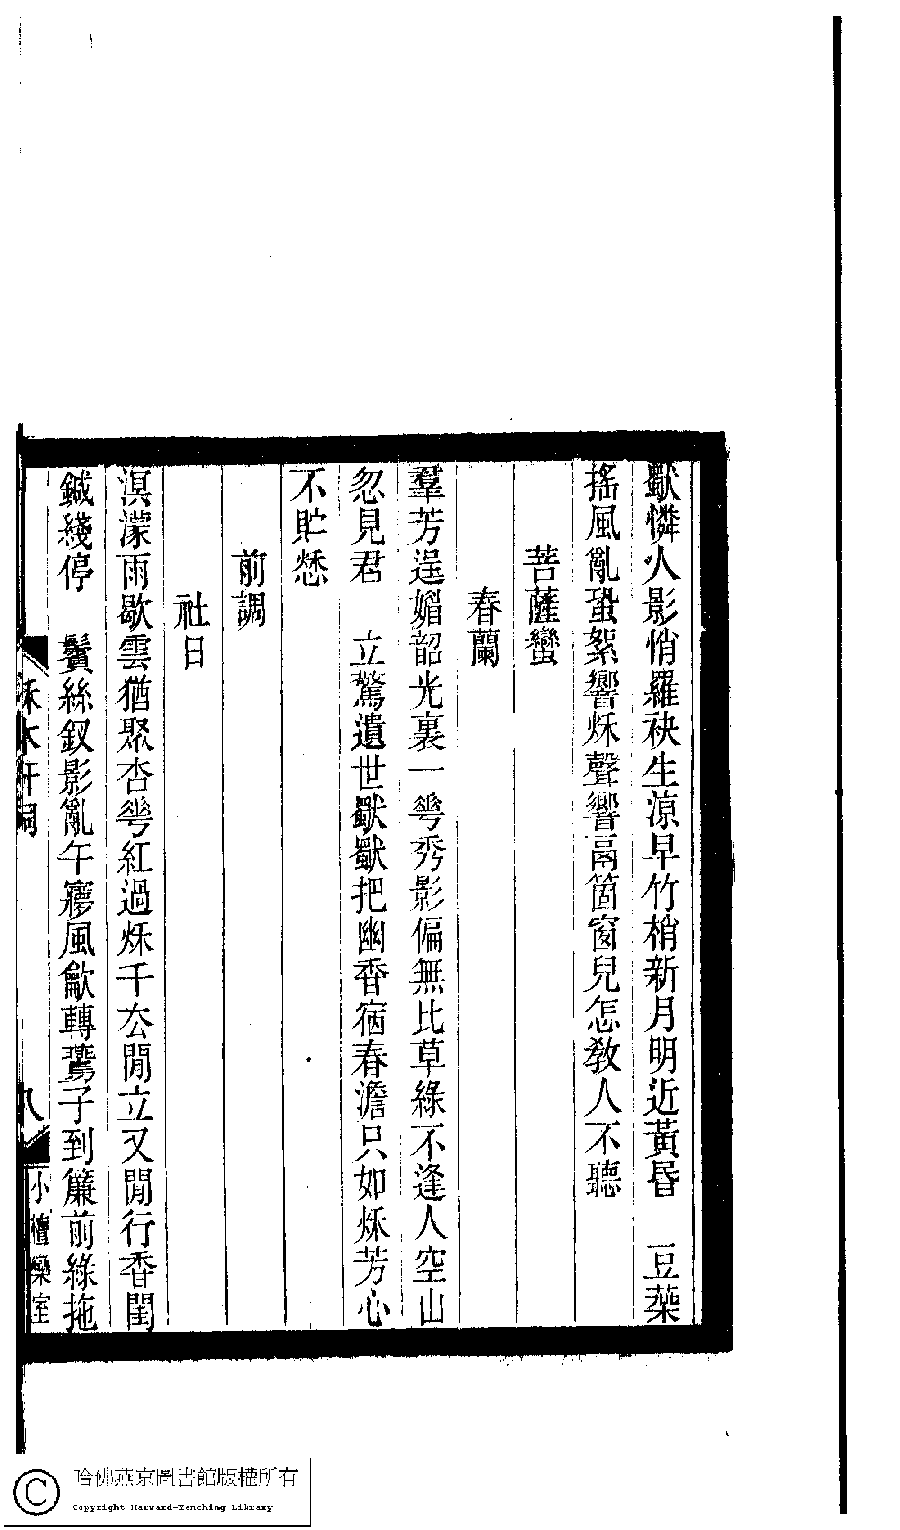 獨憐人影悄羅袂生涼早竹梢新月明近黃昬　豆葉
搖風亂蛩絮響秌聲響鬲箇窗兒怎教人不聽
菩薩蠻
春蘭
羣芳逞媚韶光裏一𠌶秀影偏無比草綠不逢人空山
忽見君　立驚遺世獨獨把幽香宿春澹只如秌芳心
不貯愁
前調
社日
溟濛雨歇雲猶聚杏𠌶紅過秌千去閒立又閒行香閨
鍼綫停　鬢絲釵影亂午㝱風龡轉鷰子到簾前綠拖
秌水軒詞　八　小檀欒室
哈佛燕京圖書館版權所有
Copyright Harvard-Yenching Library